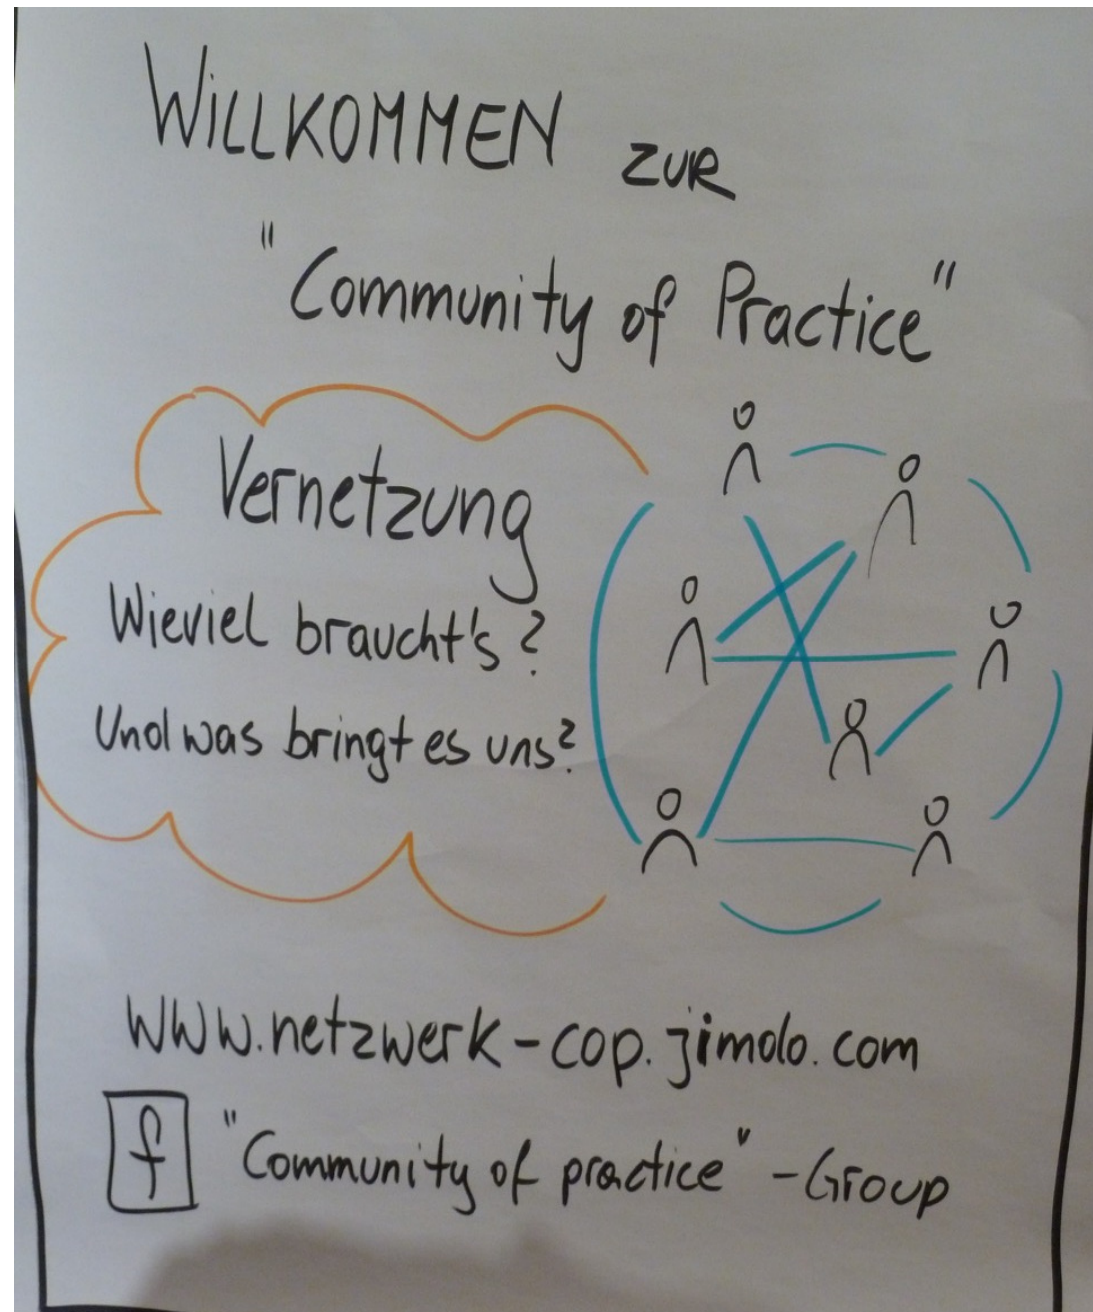 WILLKOMMEN ZUR
"Community of Practice"
Vernetzung
Wieviel braucht's?
Und was bringt es uns?
www.netzwerk-cop.jimdo.com
f "Community of practice" - Group